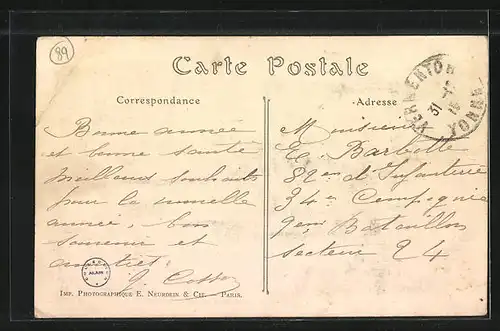 89
Carte Postale
Correspondance
Adresse
VERMENTON
31
YONNE
Bonne année
et bonne santé
meilleurs souhaits
pour la nouvelle
année, bon
souvenir et
amitiés
Monsieur
E. Barbotte
82em d'Infanterie
34e Compagnie
9em Bataillon
secteur 24
ALAIN
IMP. PHOTOGRAPHIQUE E. NEURDEIN & CIE. — PARIS.